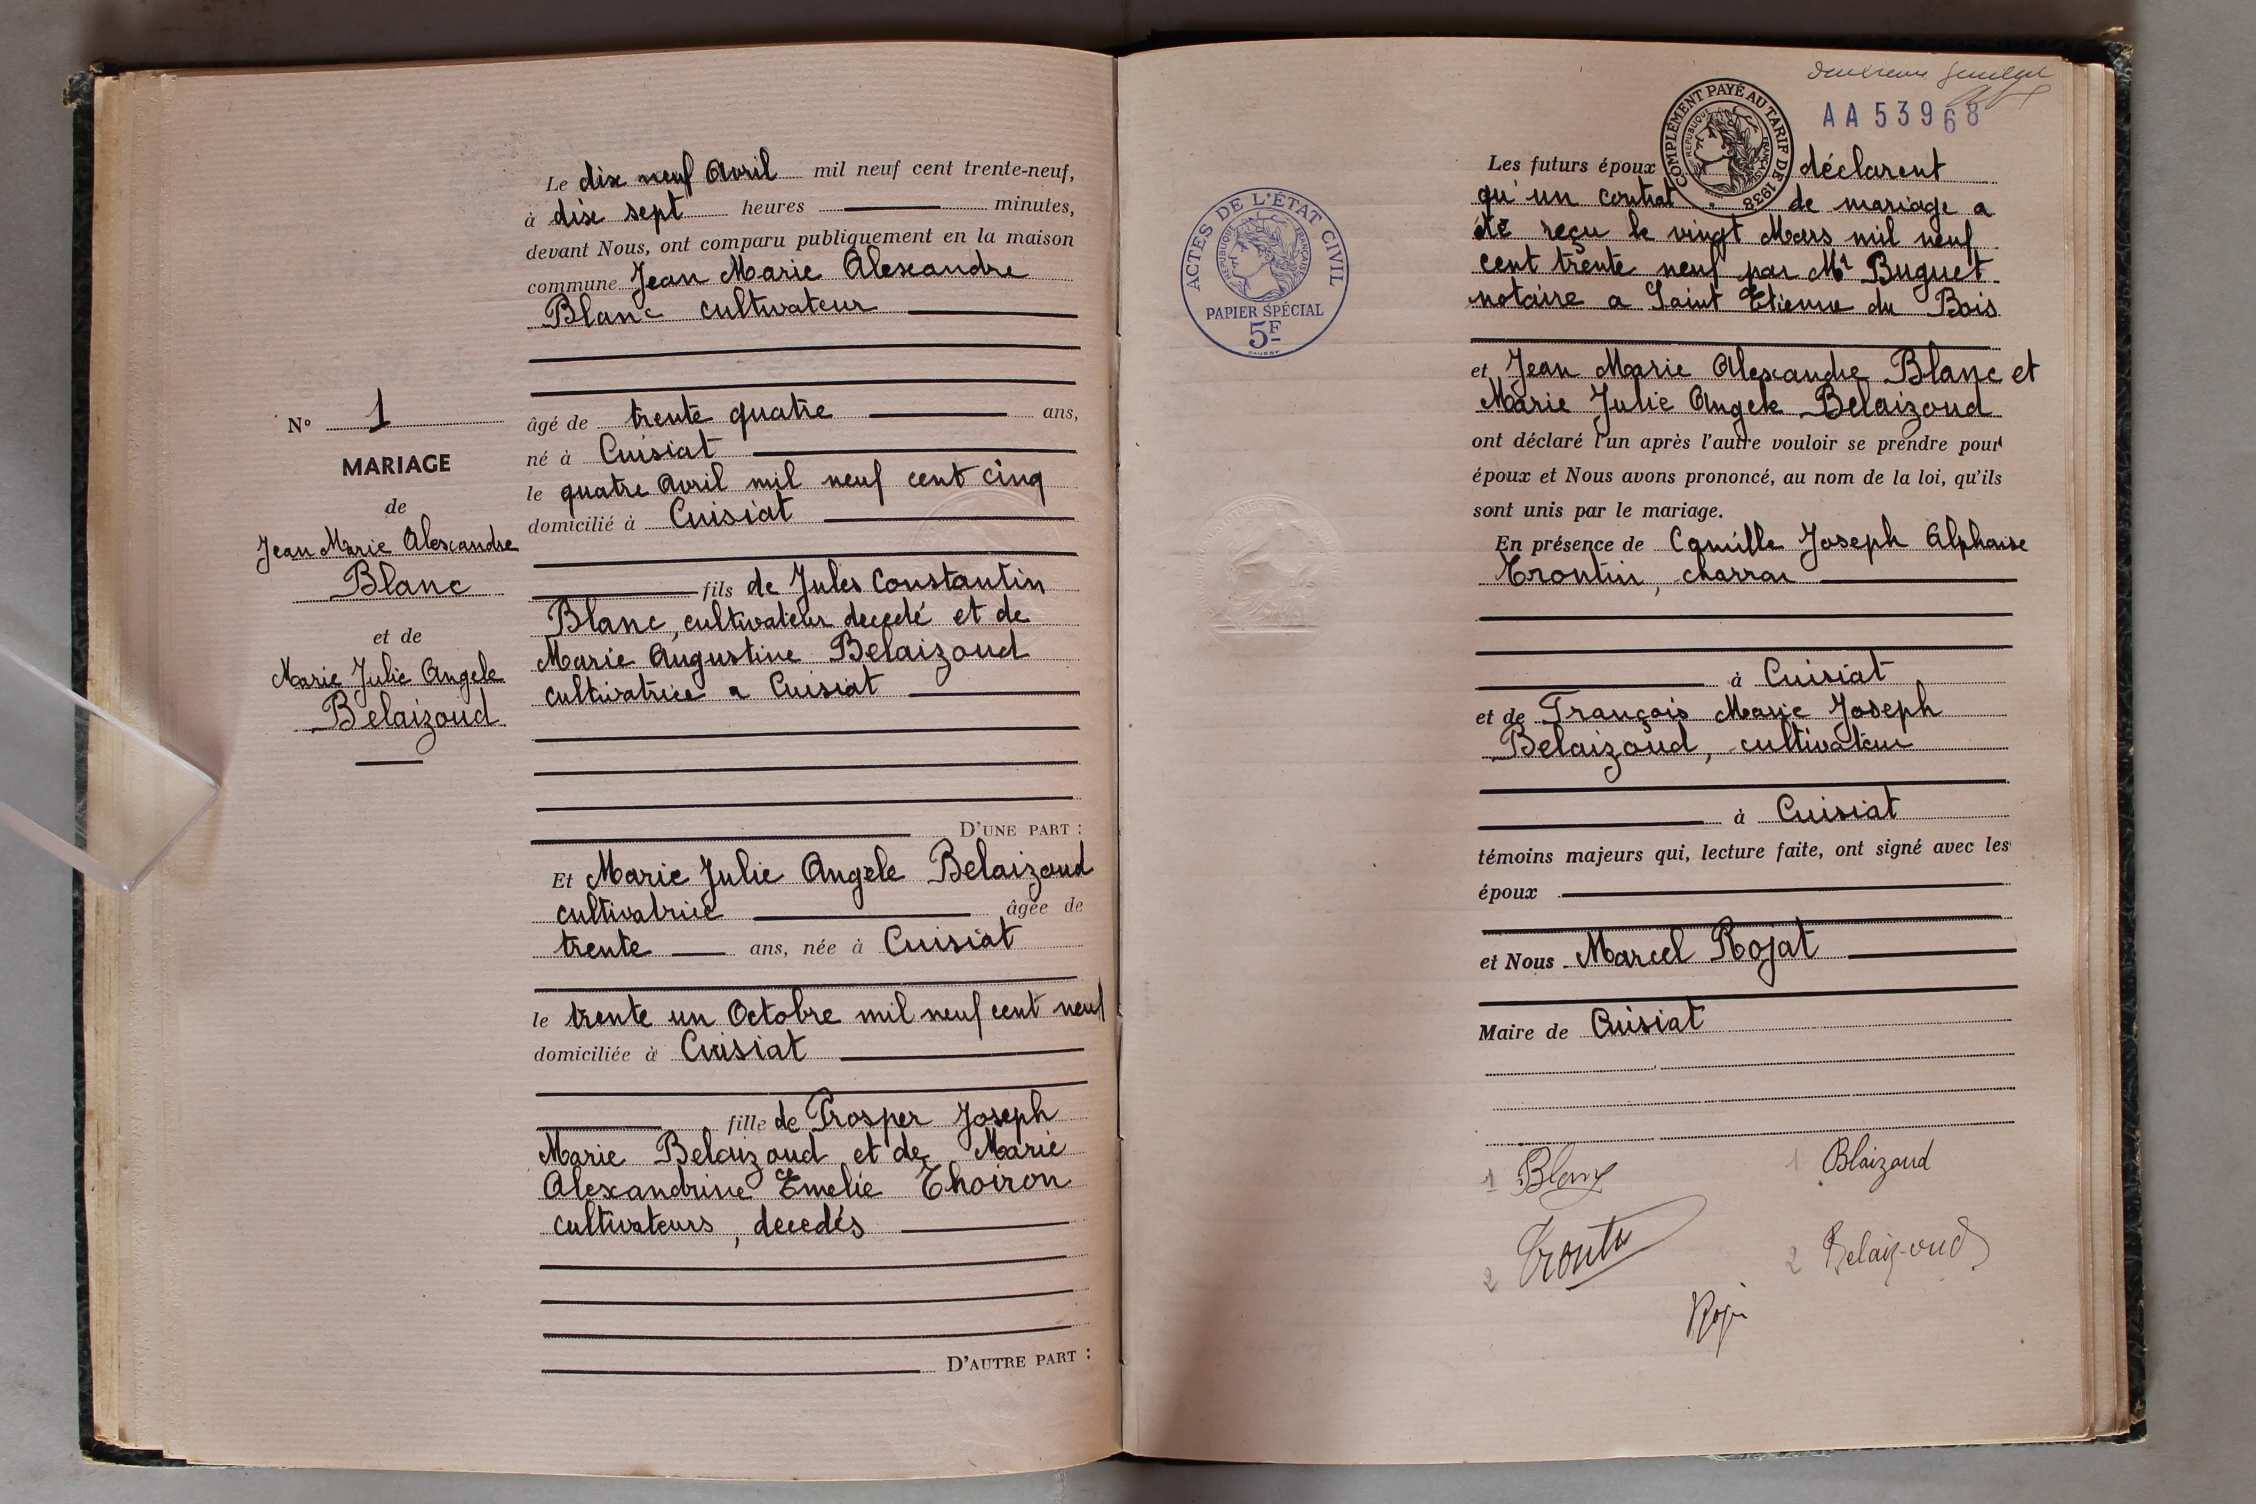 N° 1
MARIAGE
de
Jean Marie Alexandre
Blanc
et de
Marie Julie Angele
Belaizoud
Le dix neuf Avril mil neuf cent trente-neuf,
à dix sept heures minutes,
devant Nous, ont comparu publiquement en la maison
commune Jean Marie Alexandre
Blanc cultivateur
âgé de trente quatre ans,
né à Cuisiat
le quatre Avril mil neuf cent cinq
domicilié à Cuisiat
fils de Jules Constantin
Blanc, cultivateur decedé et de
Marie Augustine Belaizoud
cultivatrice a Cuisiat
D'UNE PART :
Et Marie Julie Angèle Belaizoud
cultivatrice âgée de
trente ans, née à Cuisiat
le trente un Octobre mil neuf cent neuf
domiciliée à Cuisiat
fille de Prosper Joseph
Marie Belaizoud et de Marie
Alexandrine Emelie Thoiron
cultivateurs, decedés
D'AUTRE PART :
ACTES DE L'ÉTAT CIVIL
RÉPUBLIQUE FRANÇAISE
PAPIER SPÉCIAL
5F
COMPLÉMENT PAYÉ AU TARIF DE 1938
RÉPUBLIQUE FRANÇAISE
AA53968
Les futurs époux déclarent
qu'un contrat de mariage a
été reçu le vingt Mars mil neuf
cent trente neuf par Mt Buguet
notaire a Saint Etienne du Bois
et Jean Marie Alexandre Blanc et
Marie Julie Angele Belaizoud
ont déclaré l'un après l'autre vouloir se prendre pour
époux et Nous avons prononcé, au nom de la loi, qu'ils
sont unis par le mariage.
En présence de Camille Joseph Alphonse
Trontin, charron
à Cuisiat
et de François Marie Joseph
Belaizoud, cultivateur
à Cuisiat
témoins majeurs qui, lecture faite, ont signé avec les
époux
et Nous Marcel Rojat
Maire de Cuisiat
1 Blanc
1 Blaizoud
2
2 Belaizoud